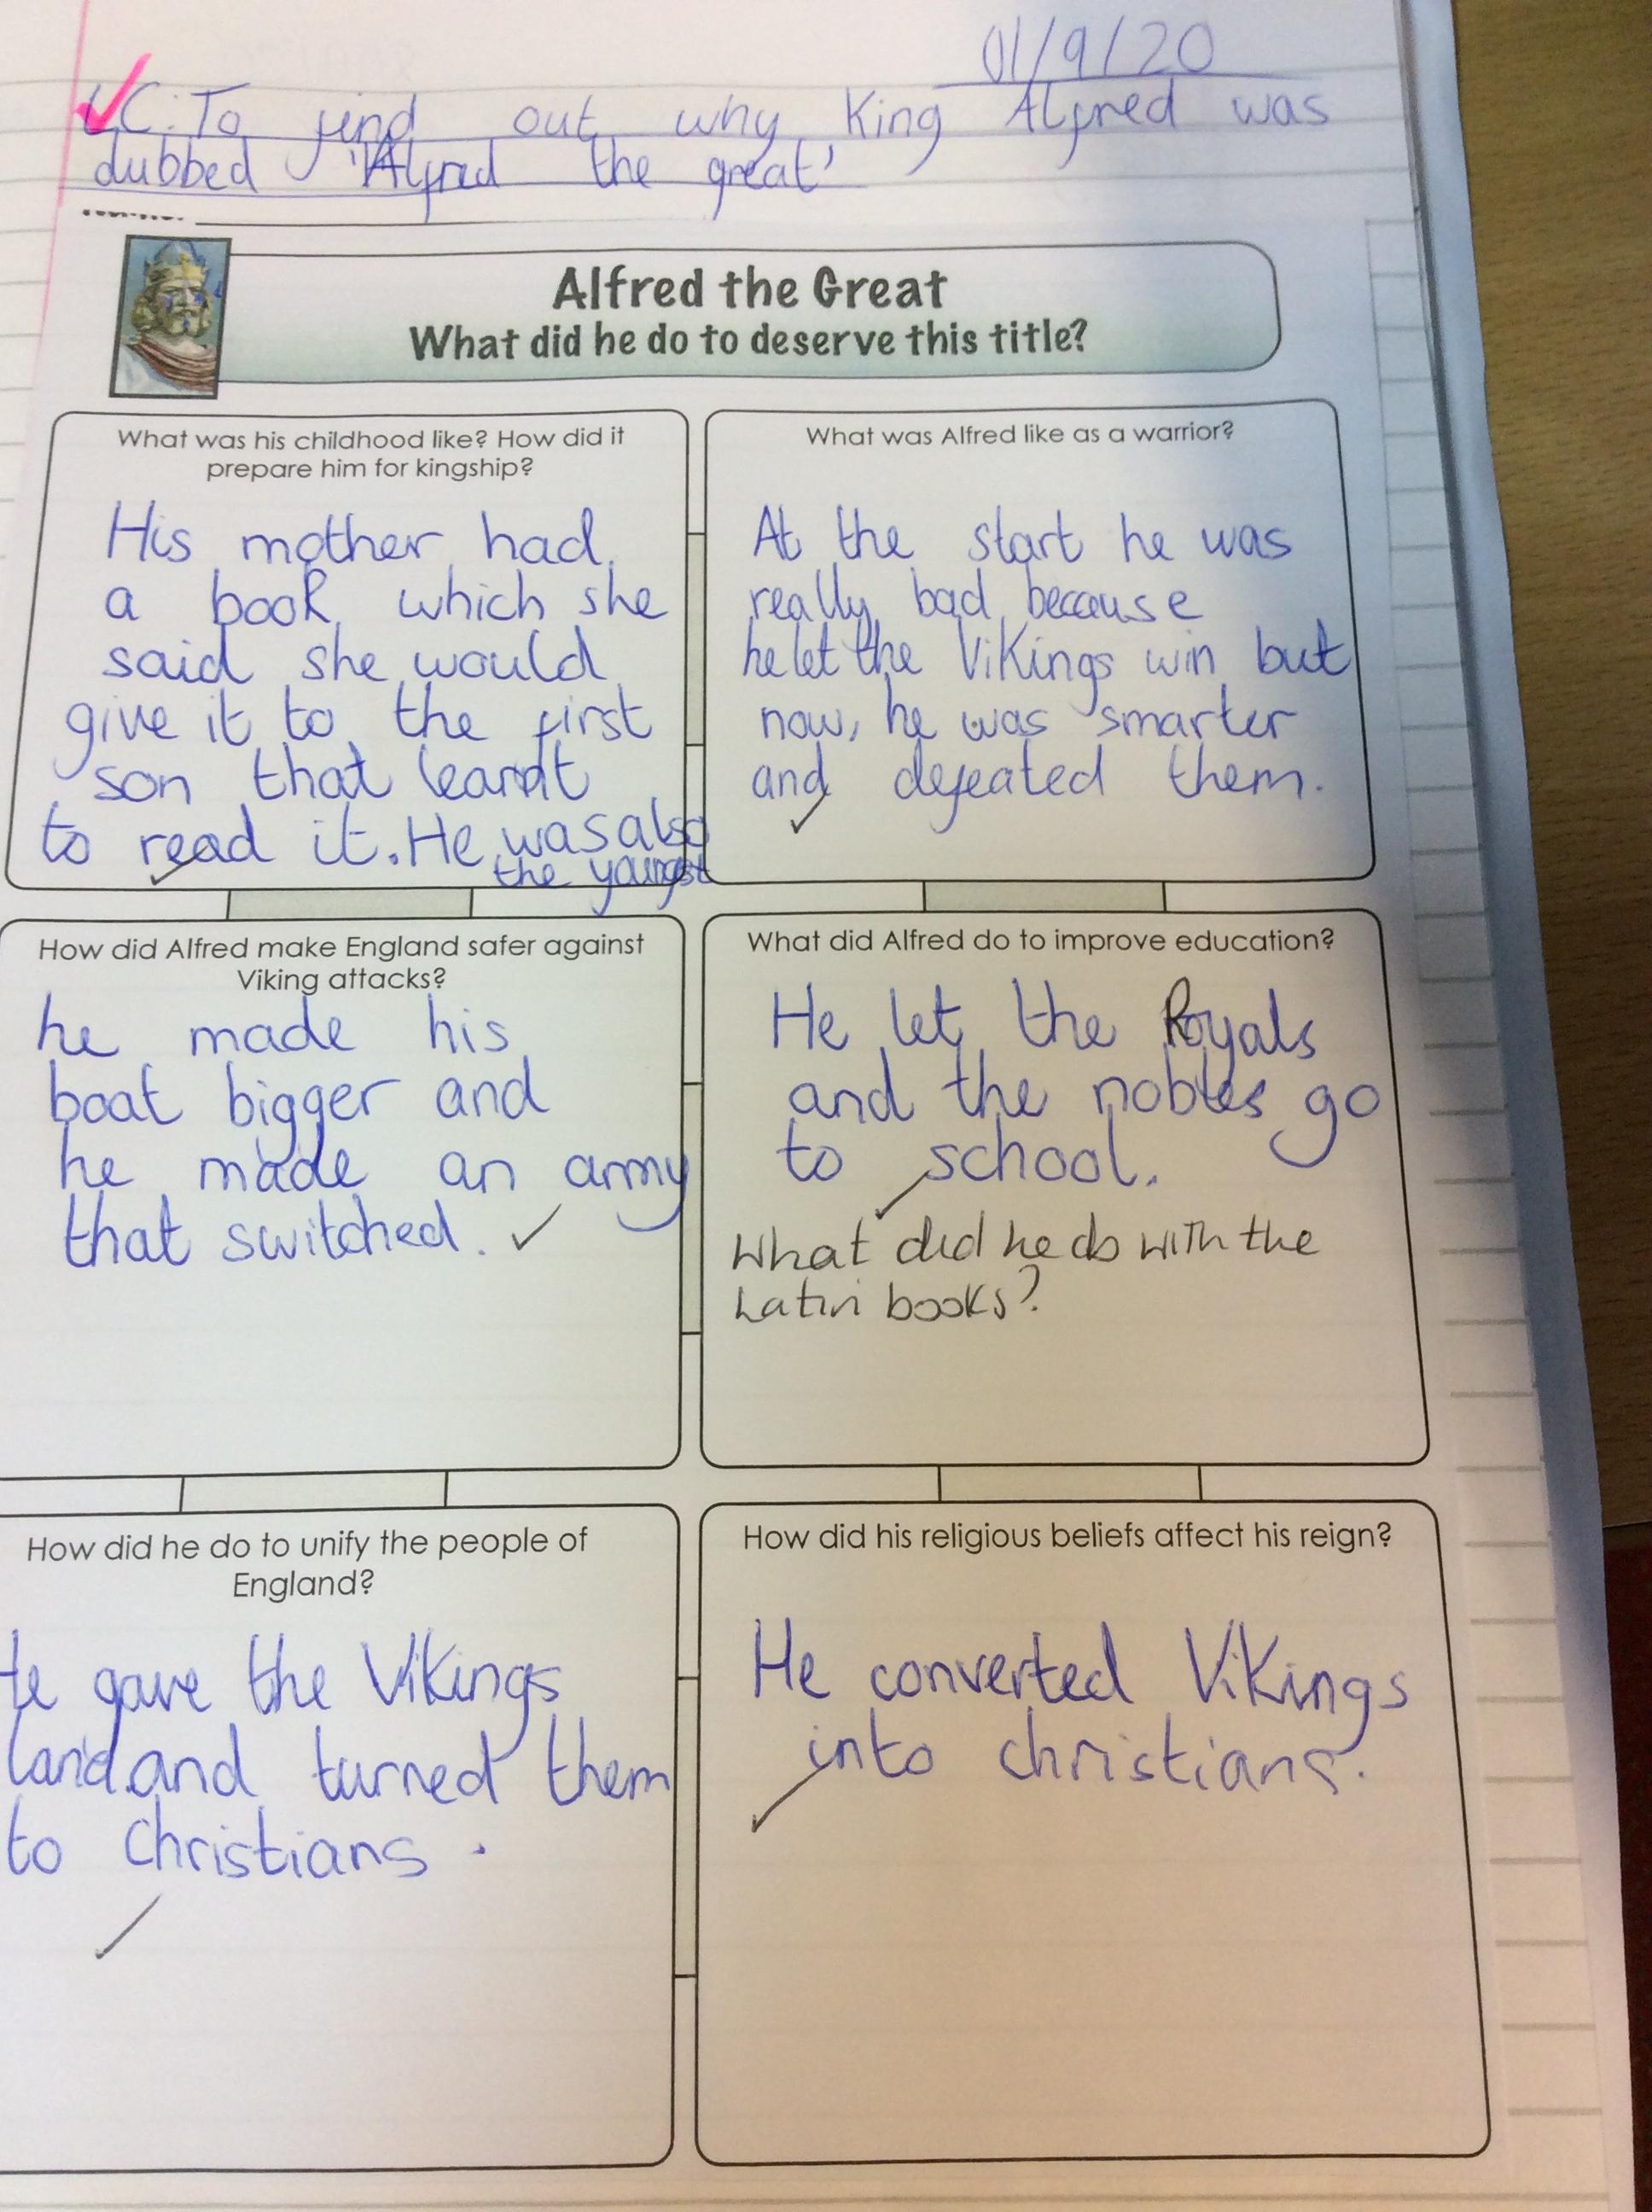 01/9/20
LC: To find out why King Alfred was
dubbed 'Alfred the great'
Alfred the Great
What did he do to deserve this title?
What was his childhood like? How did it
prepare him for kingship?
His mother had
a book which she
said she would
give it to the first
son that learnt
to read it. He was also
the youngest
What was Alfred like as a warrior?
At the start he was
really bad because
he let the Vikings win but
now, he was smarter
and defeated them.
How did Alfred make England safer against
Viking attacks?
he made his
boat bigger and
he made an army
that switched.
What did Alfred do to improve education?
He let the Royals
and the nobles go
to school.
What did he do with the
Latin books?
How did he do to unify the people of
England?
He gave the Vikings
land and turned them
to Christians.
How did his religious beliefs affect his reign?
He converted Vikings
into christians.